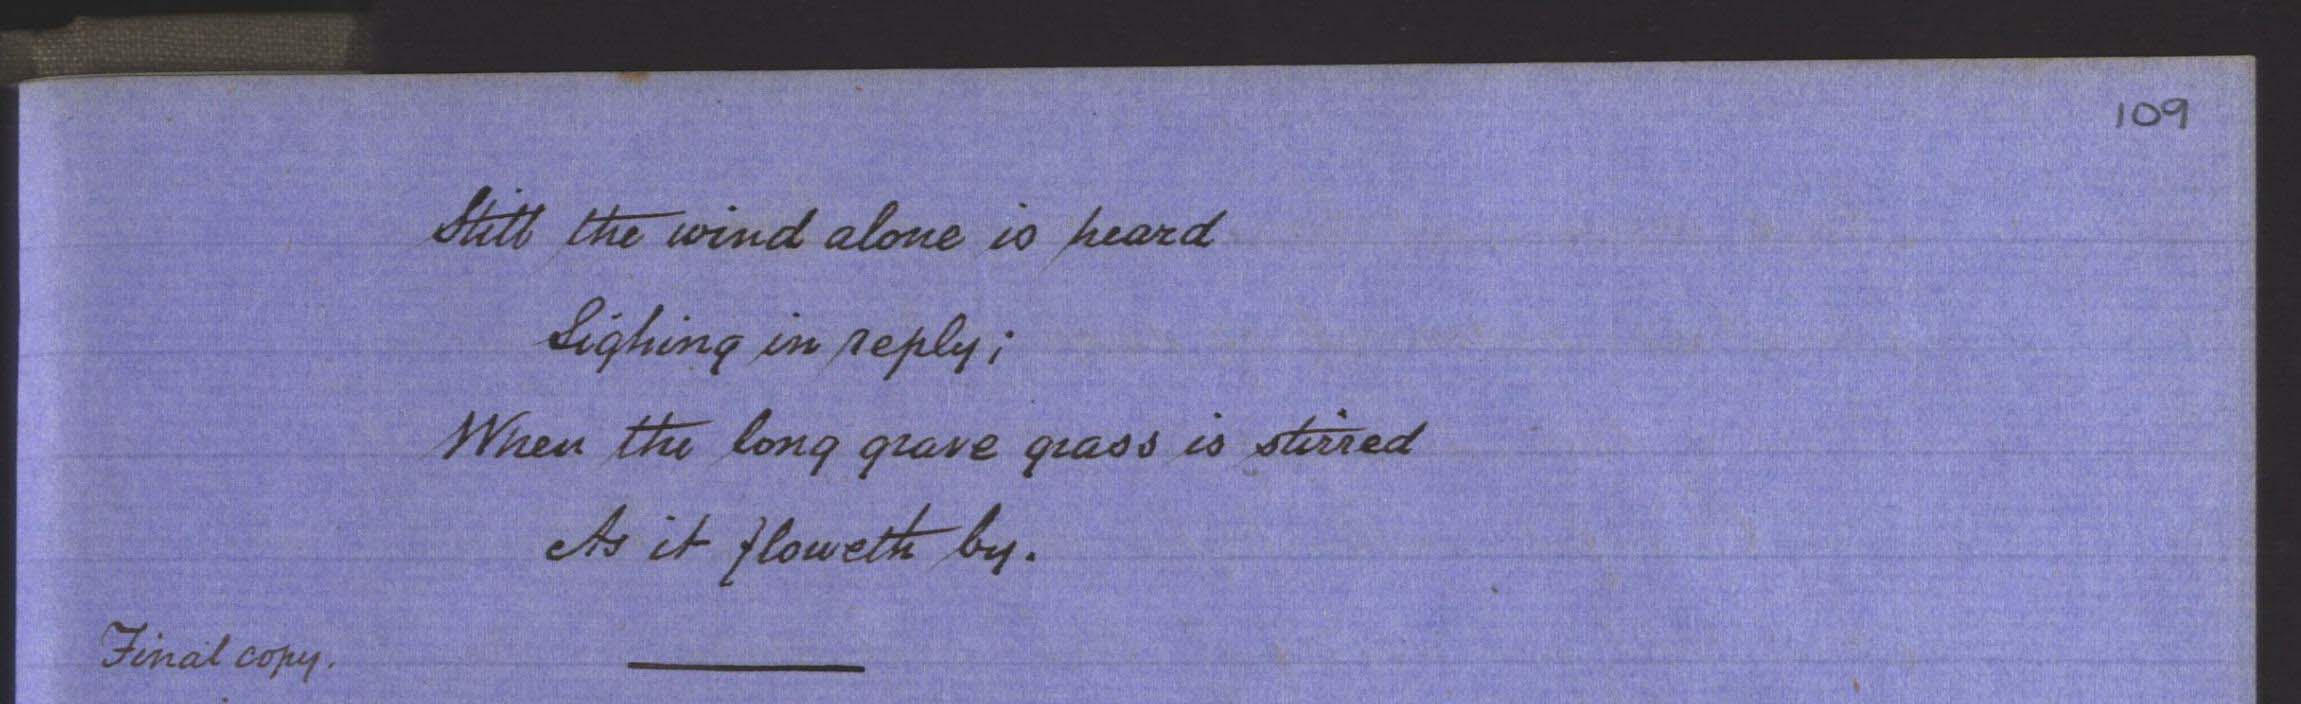 109
Still the wind alone is heard
Sighing in reply;
When the long grave grass is stirred
As it floweth by.
Final copy.